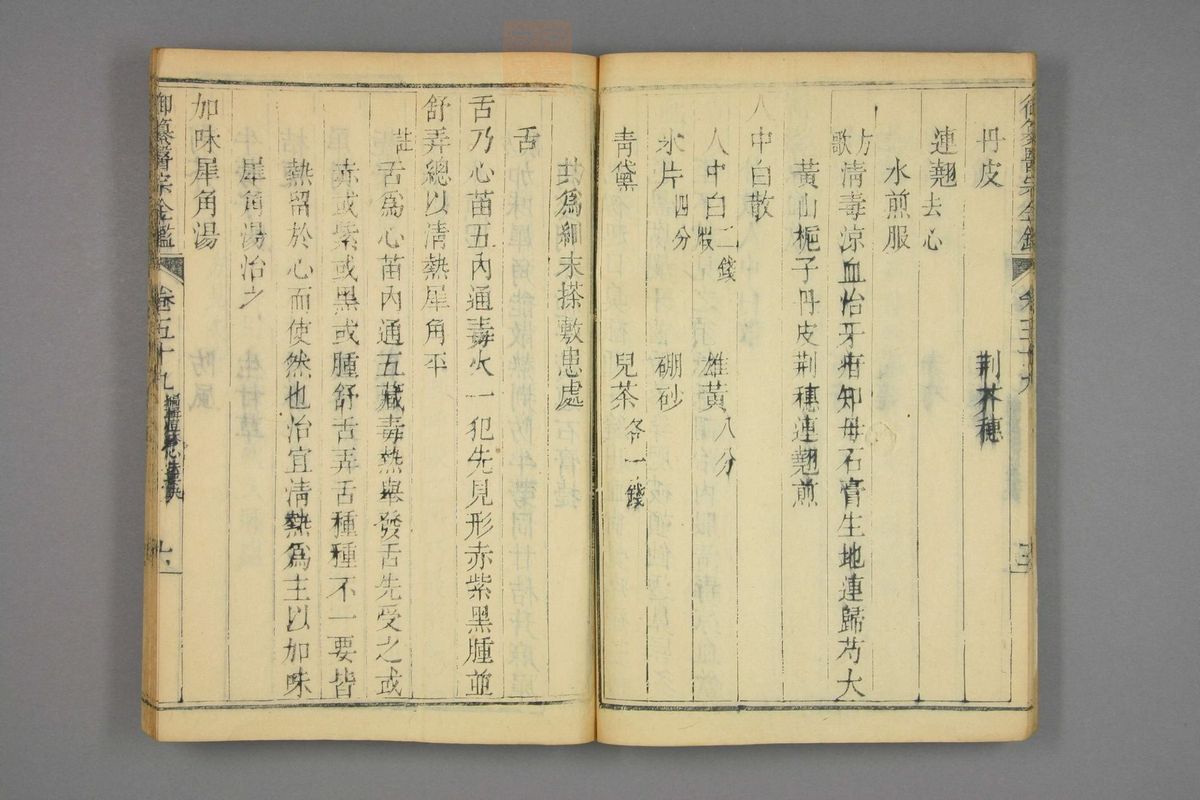 丹皮 荆芥穗
連翹去心
水煎服
方歌 清毒涼血治牙疳知母石膏生地連歸芍大
黃山梔子丹皮荆穗連翹煎
人中白散
人中白二錢煆 雄黃八分
氷片四分 硼砂
靑黛 兒茶各一錢
共爲細末搽敷患處
舌
舌乃心苗五內通毒火一犯先見形赤紫黑腫並
舒弄總以清熱犀角平
註 舌爲心苗內通五藏毒熱舉發舌先受之或
赤或紫或黑或腫舒舌弄舌種種不一要皆
熱留於心而使然也治宜淸熱爲主以加味
犀角湯治之
加味犀角湯
御纂醫宗金鑑 卷五十九